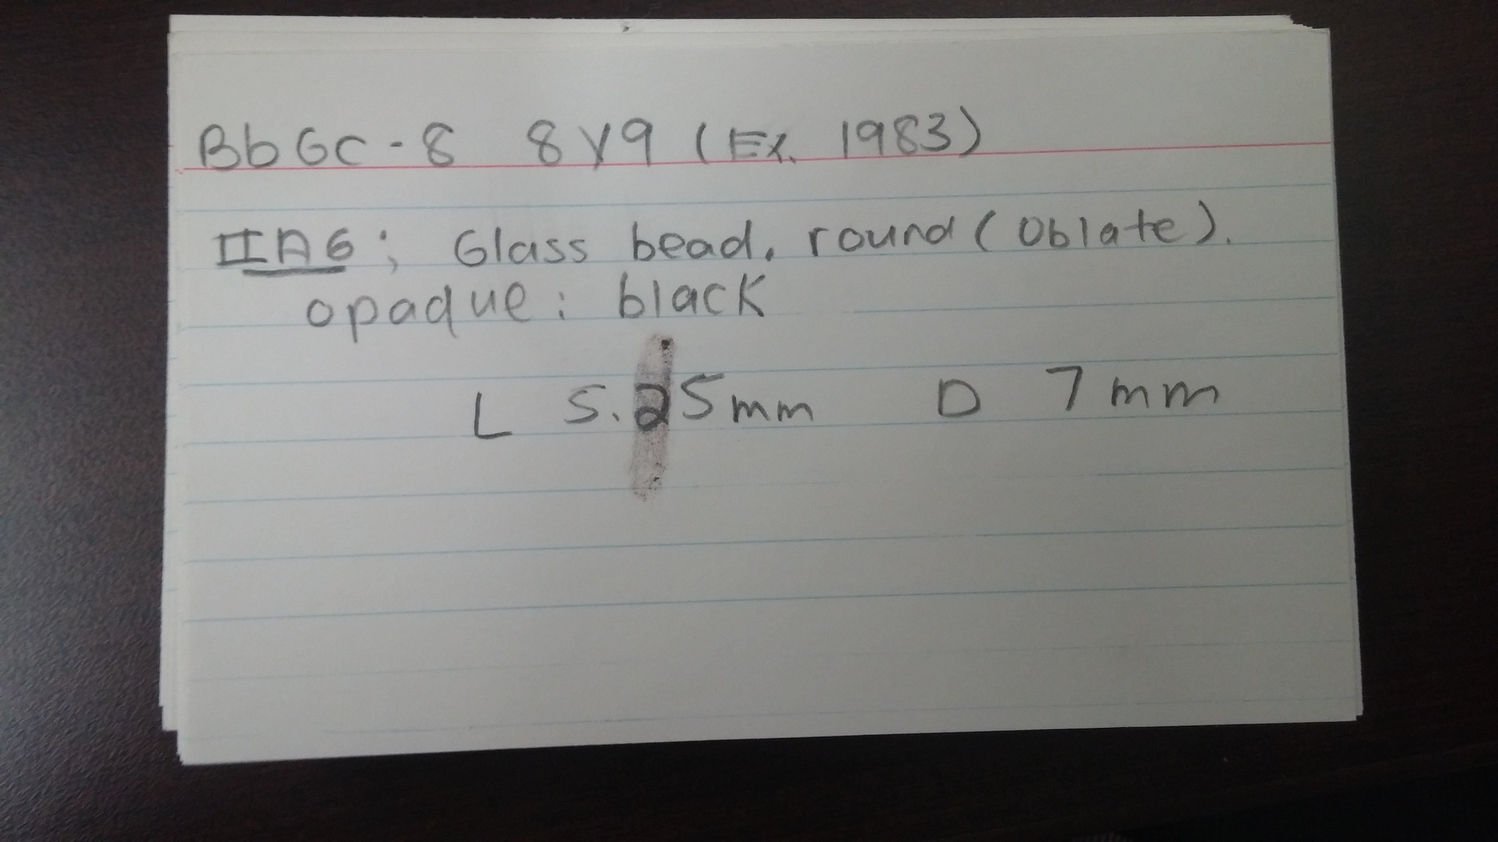 BbGc-8 8Y9 (Ex. 1983)
IIA6; Glass bead, round (oblate).
opaque; black
L 5.25mm D 7mm